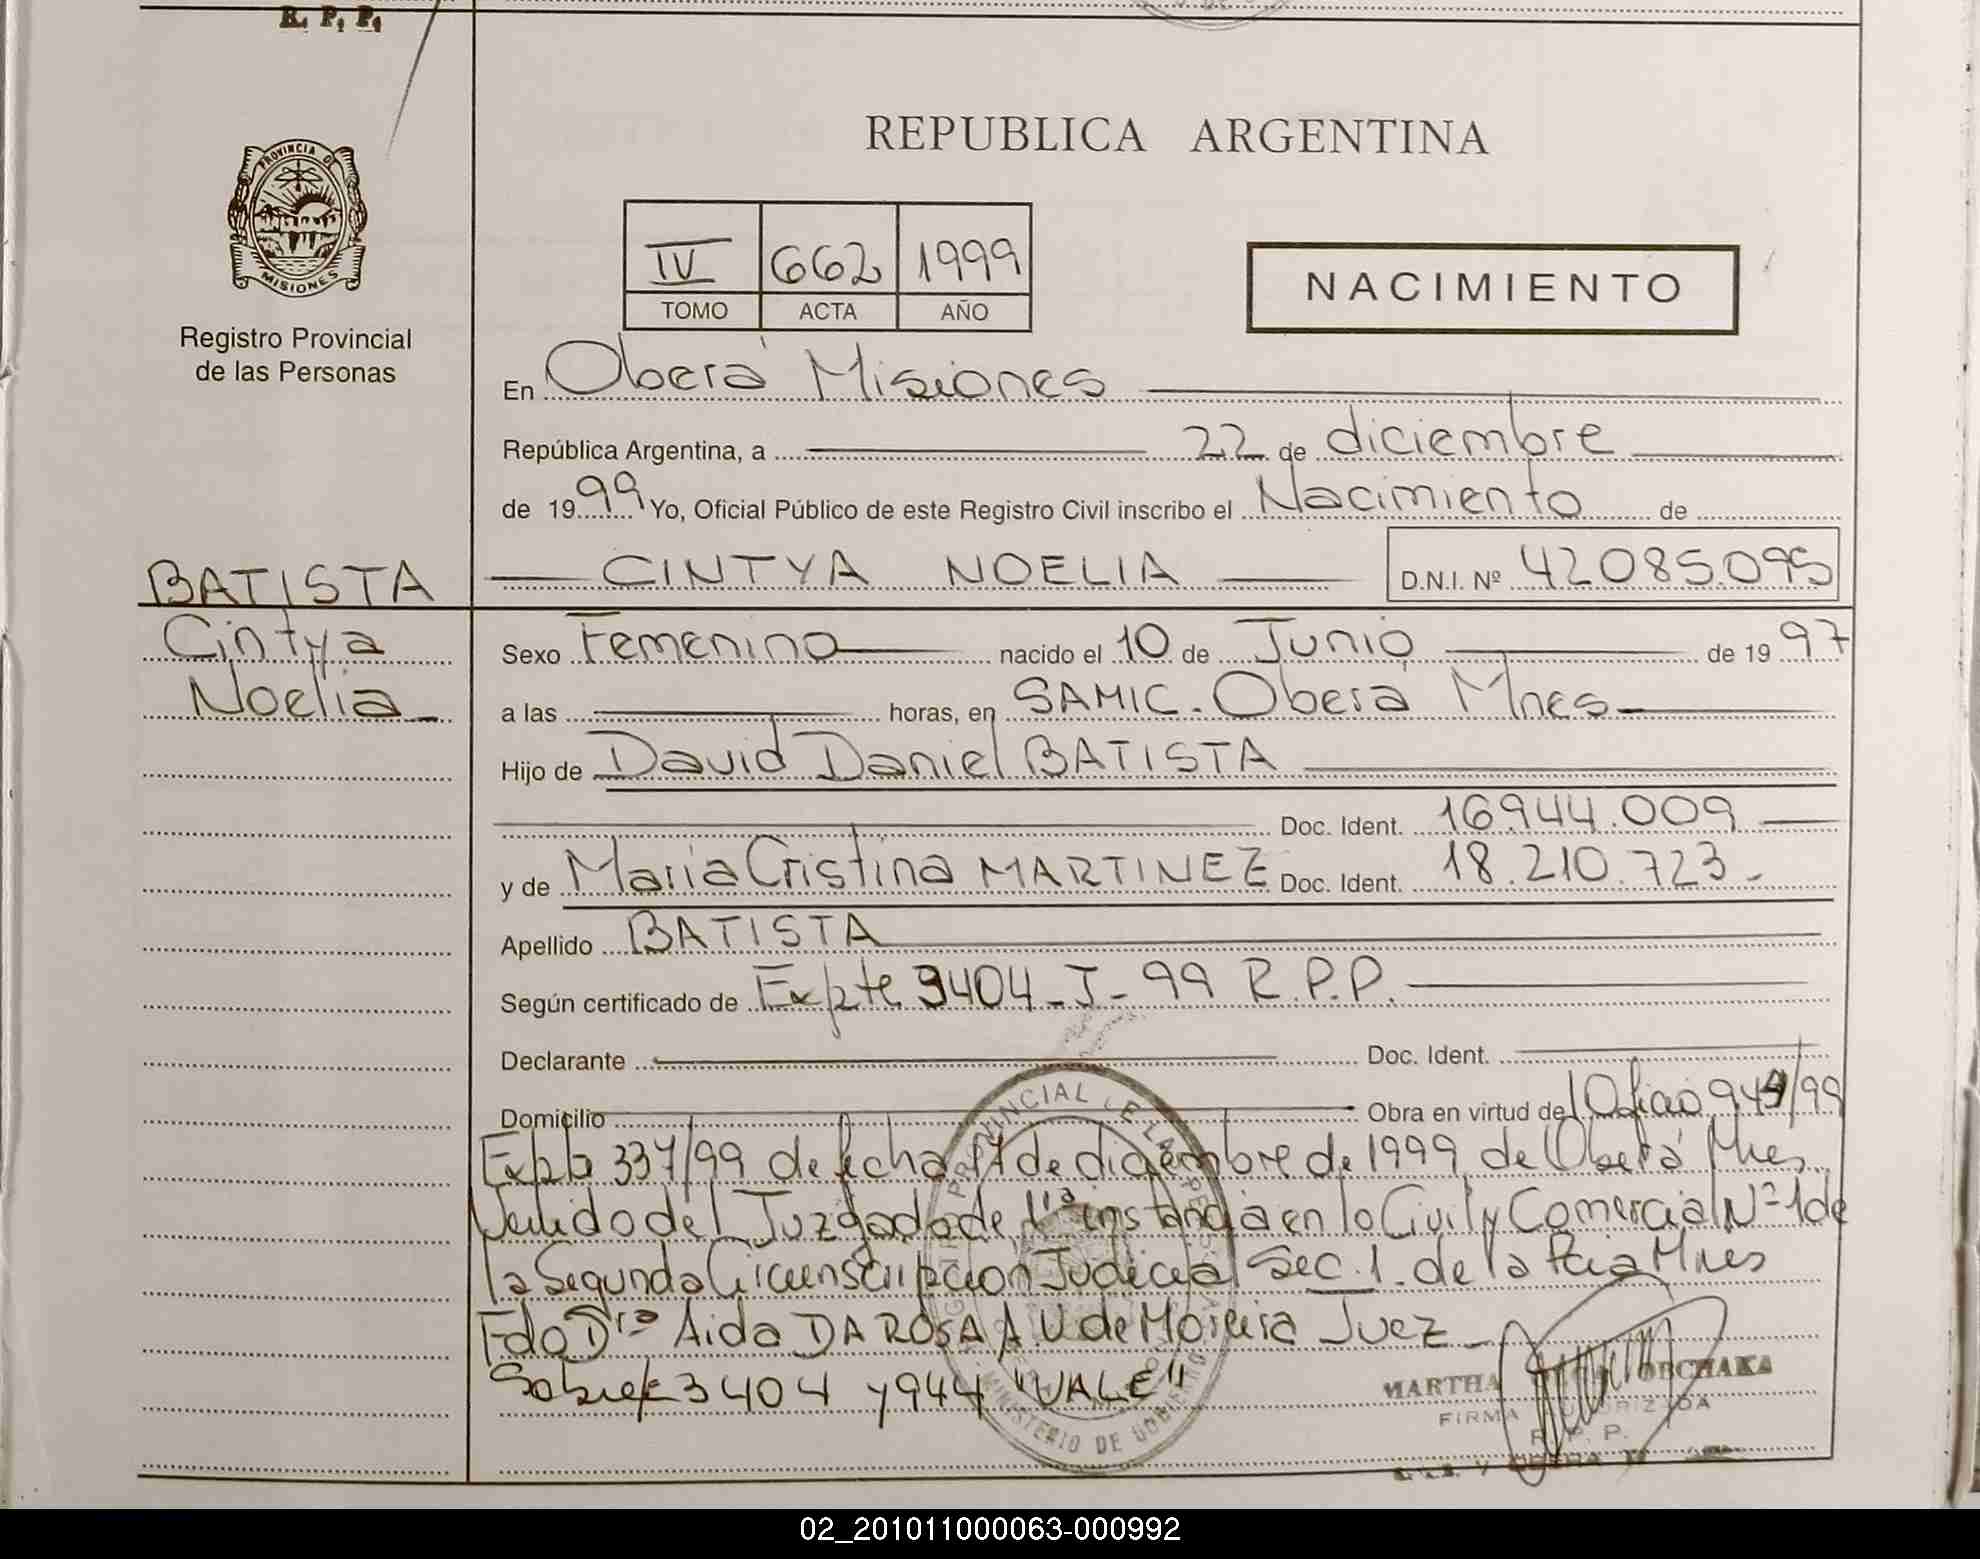 R. P. P.
PROVINCIA DE
MISIONES
Registro Provincial
de las Personas
REPUBLICA ARGENTINA
IV 662 1999
TOMO ACTA AÑO
NACIMIENTO
En Oberá Misiones
República Argentina, a 22 de diciembre
de 1999 Yo, Oficial Público de este Registro Civil inscribo el Nacimiento de
CINTYA NOELIA D.N.I. Nº 42085.095
BATISTA
Cintya
Noelia
Sexo Femenino nacido el 10 de Junio de 1997
a las horas, en SAMIC. Oberá Mnes
Hijo de David Daniel BATISTA
Doc. Ident. 16944.009
y de Maria Cristina MARTINEZ Doc. Ident. 18.210.723
Apellido BATISTA
Según certificado de Expte 3404-J-99 R.P.P.
Declarante Doc. Ident.
Domicilio Obra en virtud del Oficio 944/99
Expte 337/99 de fecha 17 de diciembre de 1999 de Oberá Mnes
Venido del Juzgado de 1ra instancia en lo Civil y Comercial Nº 1 de
la Segunda Circunscripcion Judicial Sec. 1. de la Pcia Mnes
Fdo Dra Aida DA ROSA A.V de Moreira Juez
Sobre 3404 y 944 "VALE"
MARTHA OBCHAKA
FIRMA AUTORIZADA
R. P. P.
MINISTERIO DE GOBIERNO
02_201011000063-000992